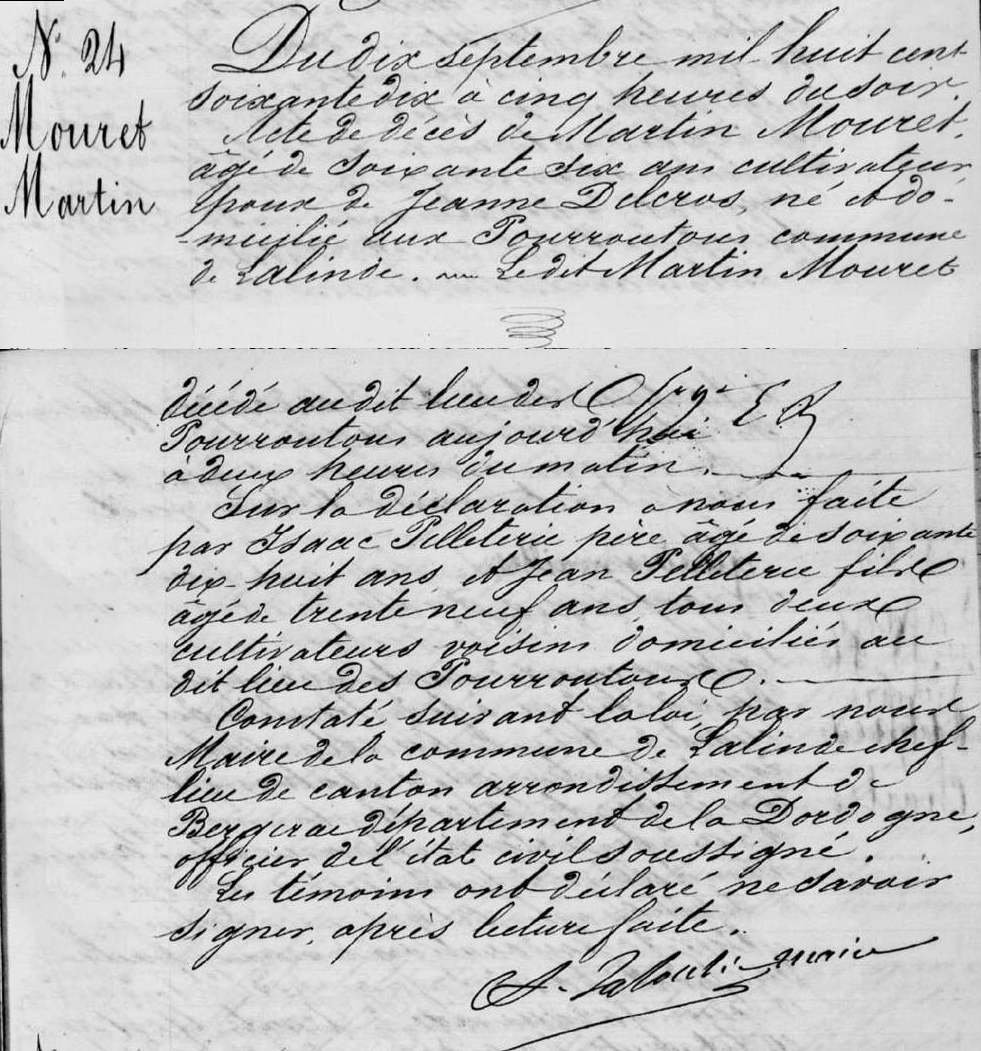 N° 24
Mouret
Martin
Du dix septembre mil huit cent
soixante dix à cinq heures du soir.
Acte de décès de Martin Mouret,
âgé de soixante six ans cultivateur
époux de Jeanne Delcros, né et do-
-micilié aux Pourroutous commune
de Lalinde. Ledit Martin Mouret
décédé audit lieu des
Pourroutous aujourd'hui
à deux heures du matin.
Sur la déclaration a nous faite
par Isaac Pelleterie père âgé de soixante
dix-huit ans et Jean Pelleterie fils
âgé de trente neuf ans, tous deux
cultivateurs voisins domiciliés au
dit lieu des Pourroutous.
Constaté suivant la loi, par nous
Maire de la commune de Lalinde chef-
lieu de canton arrondissement de
Bergerac département de la Dordogne,
officier de l'état civil soussigné.
Les témoins ont déclaré ne savoir
signer, après lecture faite.
maire